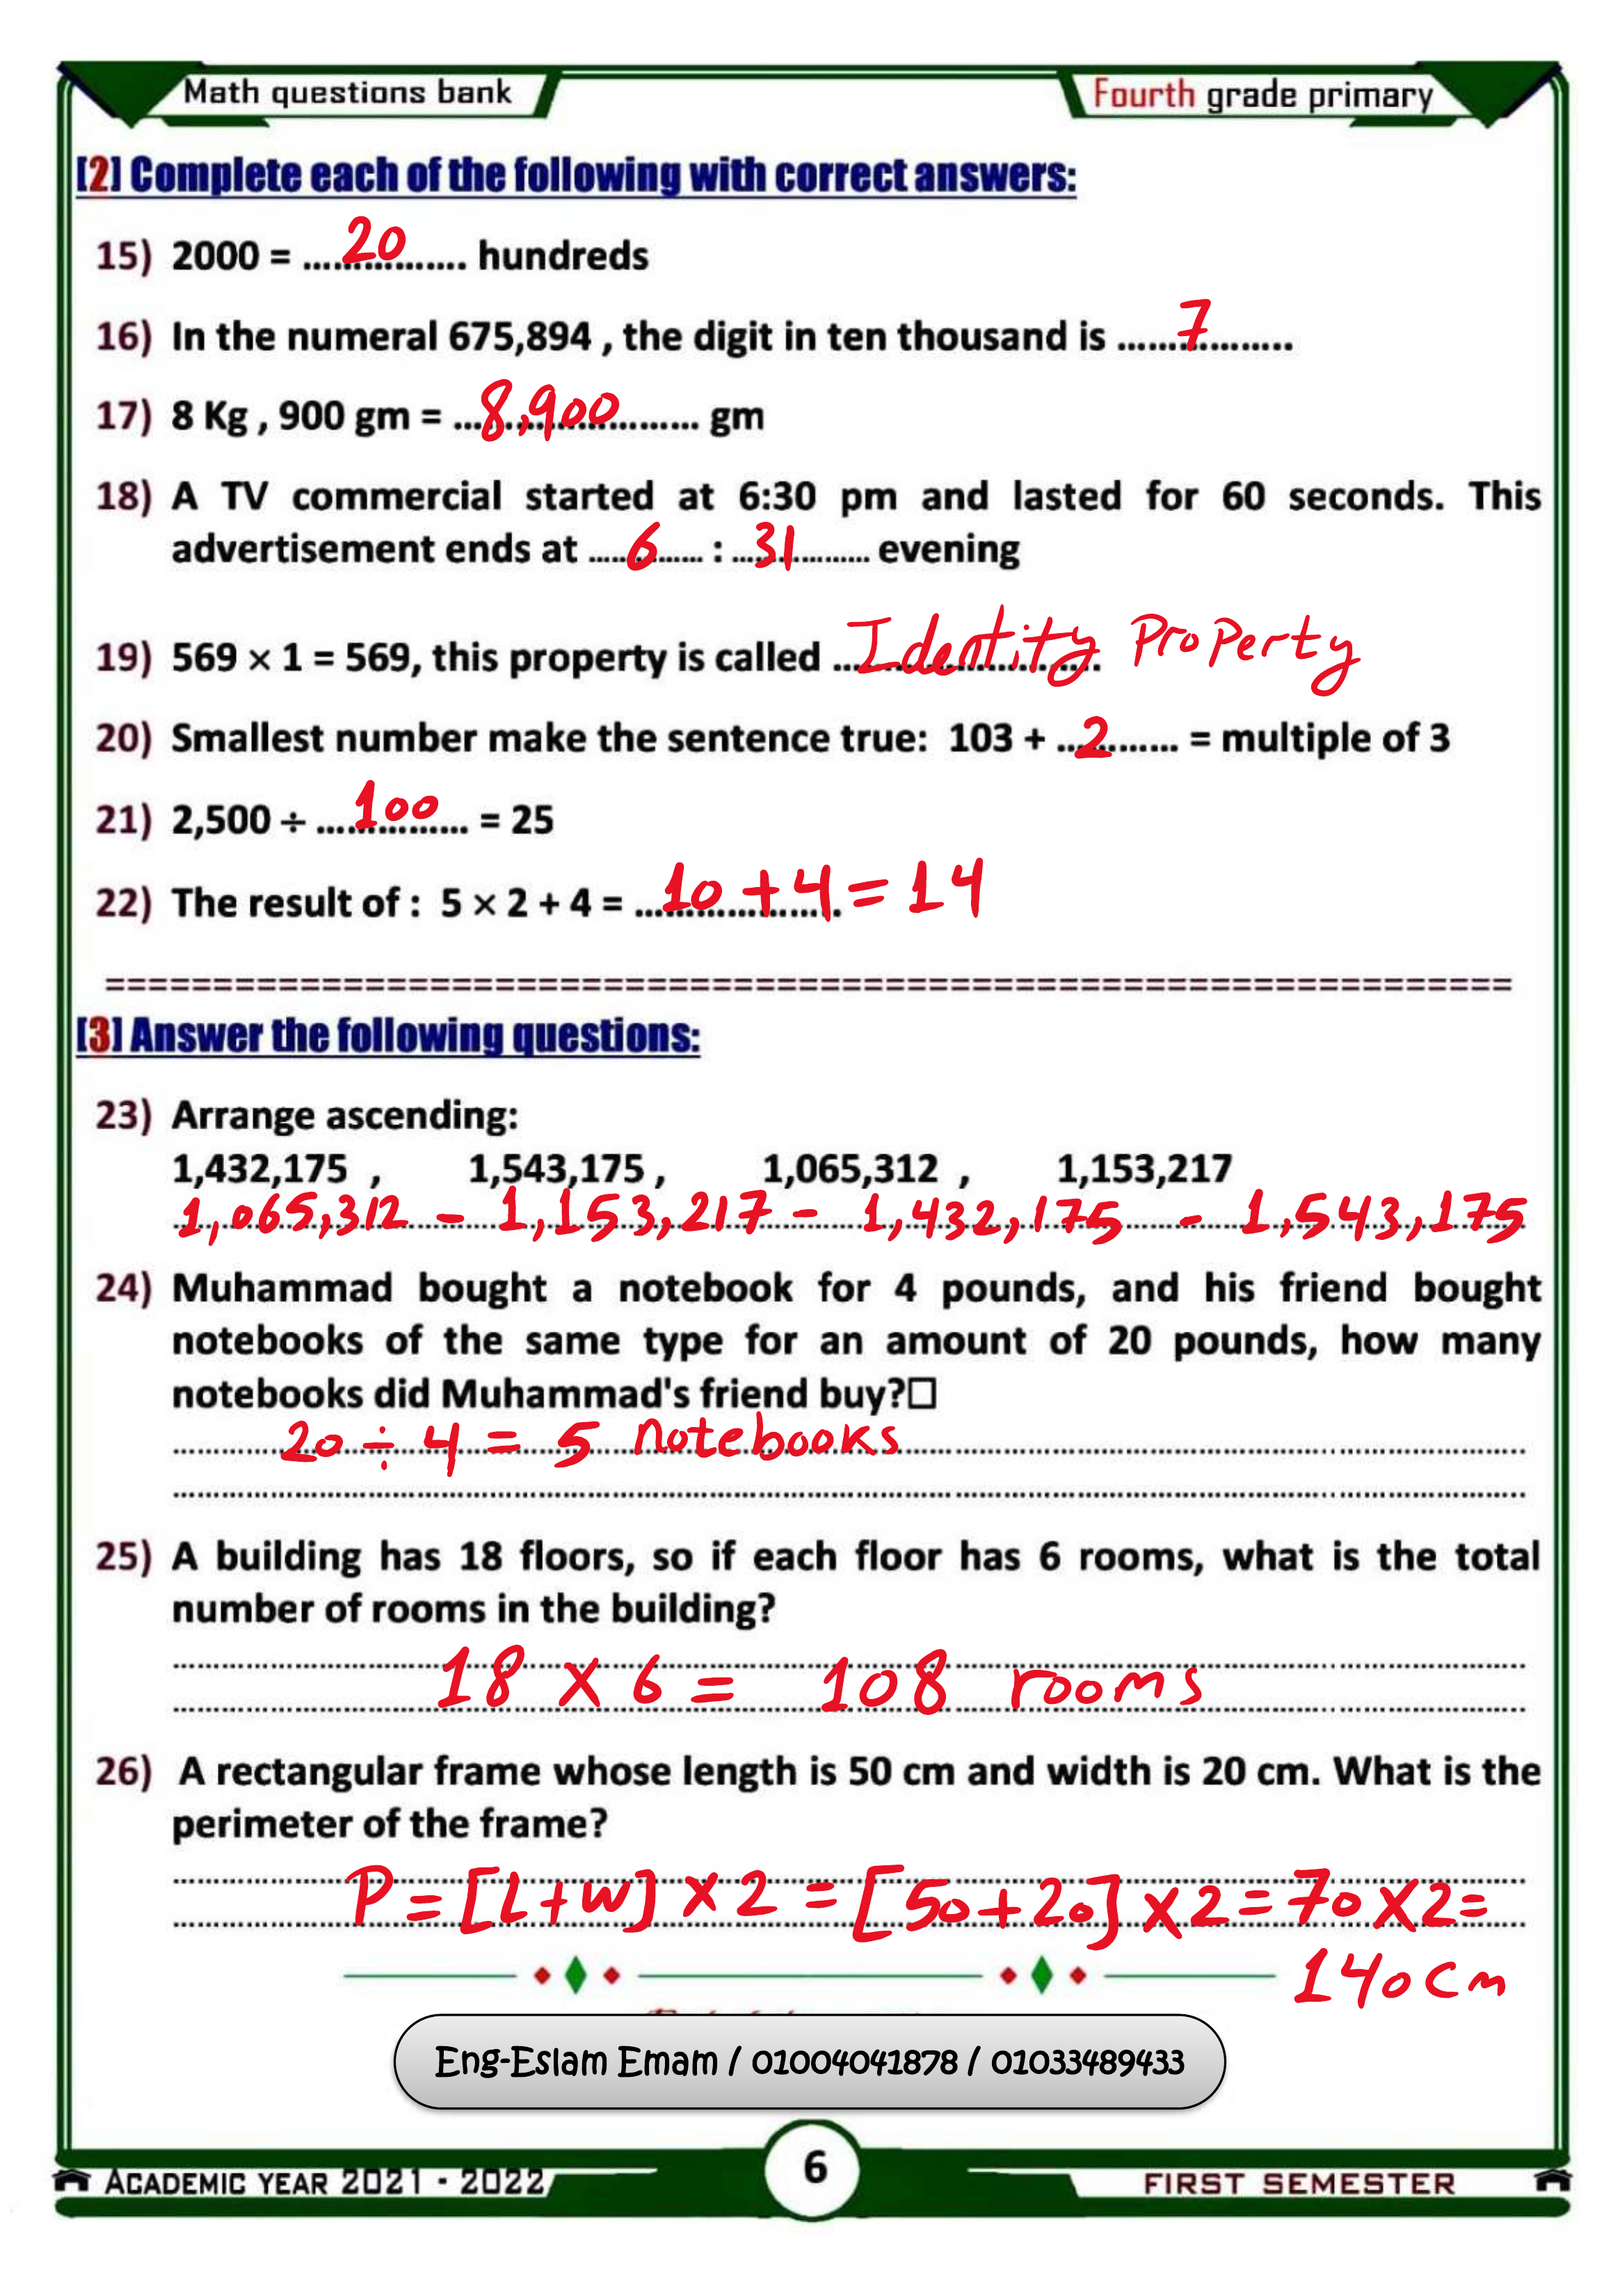 Math questions bank
Fourth grade primary
[2] Complete each of the following with correct answers:
15) 2000 = ......20...... hundreds
16) In the numeral 675,894 , the digit in ten thousand is ......7......
17) 8 Kg , 900 gm = ......8,900...... gm
18) A TV commercial started at 6:30 pm and lasted for 60 seconds. This
advertisement ends at ......6...... : ......31...... evening
19) 569 × 1 = 569, this property is called ......Identity Property
20) Smallest number make the sentence true: 103 + ......2...... = multiple of 3
21) 2,500 ÷ ......100...... = 25
22) The result of : 5 × 2 + 4 = ......10 + 4 = 14
[3] Answer the following questions:
23) Arrange ascending:
1,432,175 , 1,543,175 , 1,065,312 , 1,153,217
1,065,312 – 1,153,217 – 1,432,175 – 1,543,175
24) Muhammad bought a notebook for 4 pounds, and his friend bought
notebooks of the same type for an amount of 20 pounds, how many
notebooks did Muhammad's friend buy?□
20 ÷ 4 = 5 notebooks
25) A building has 18 floors, so if each floor has 6 rooms, what is the total
number of rooms in the building?
18 × 6 = 108 rooms
26) A rectangular frame whose length is 50 cm and width is 20 cm. What is the
perimeter of the frame?
P = [L+W] × 2 = [50+20] × 2 = 70 × 2 =
140 cm
Eng-Eslam Emam / 01004041878 / 01033489433
6
ACADEMIC YEAR 2021 - 2022
FIRST SEMESTER